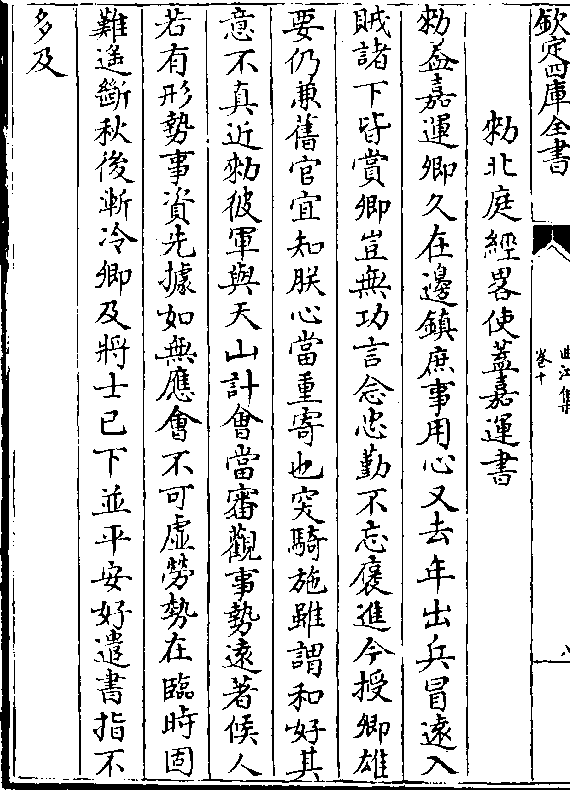 欽定四庫全書
曲江集
卷十
八
勑北庭經畧使蓋嘉運書
勑葢嘉運卿久在邊鎮庶事用心又去年出兵冒遠入
賊諸下皆賞卿豈無功言念忠勤不忘褒進今授卿雄
要仍兼舊官宜知朕心當重寄也突騎施雖謂和好其
意不真近勑彼軍與天山計會當審觀事勢逺著候人
若有形勢事資先據如無應會不可虛勞勢在臨時固
難遥斷秋後漸冷卿及將士已下並平安好遣書指不
多及